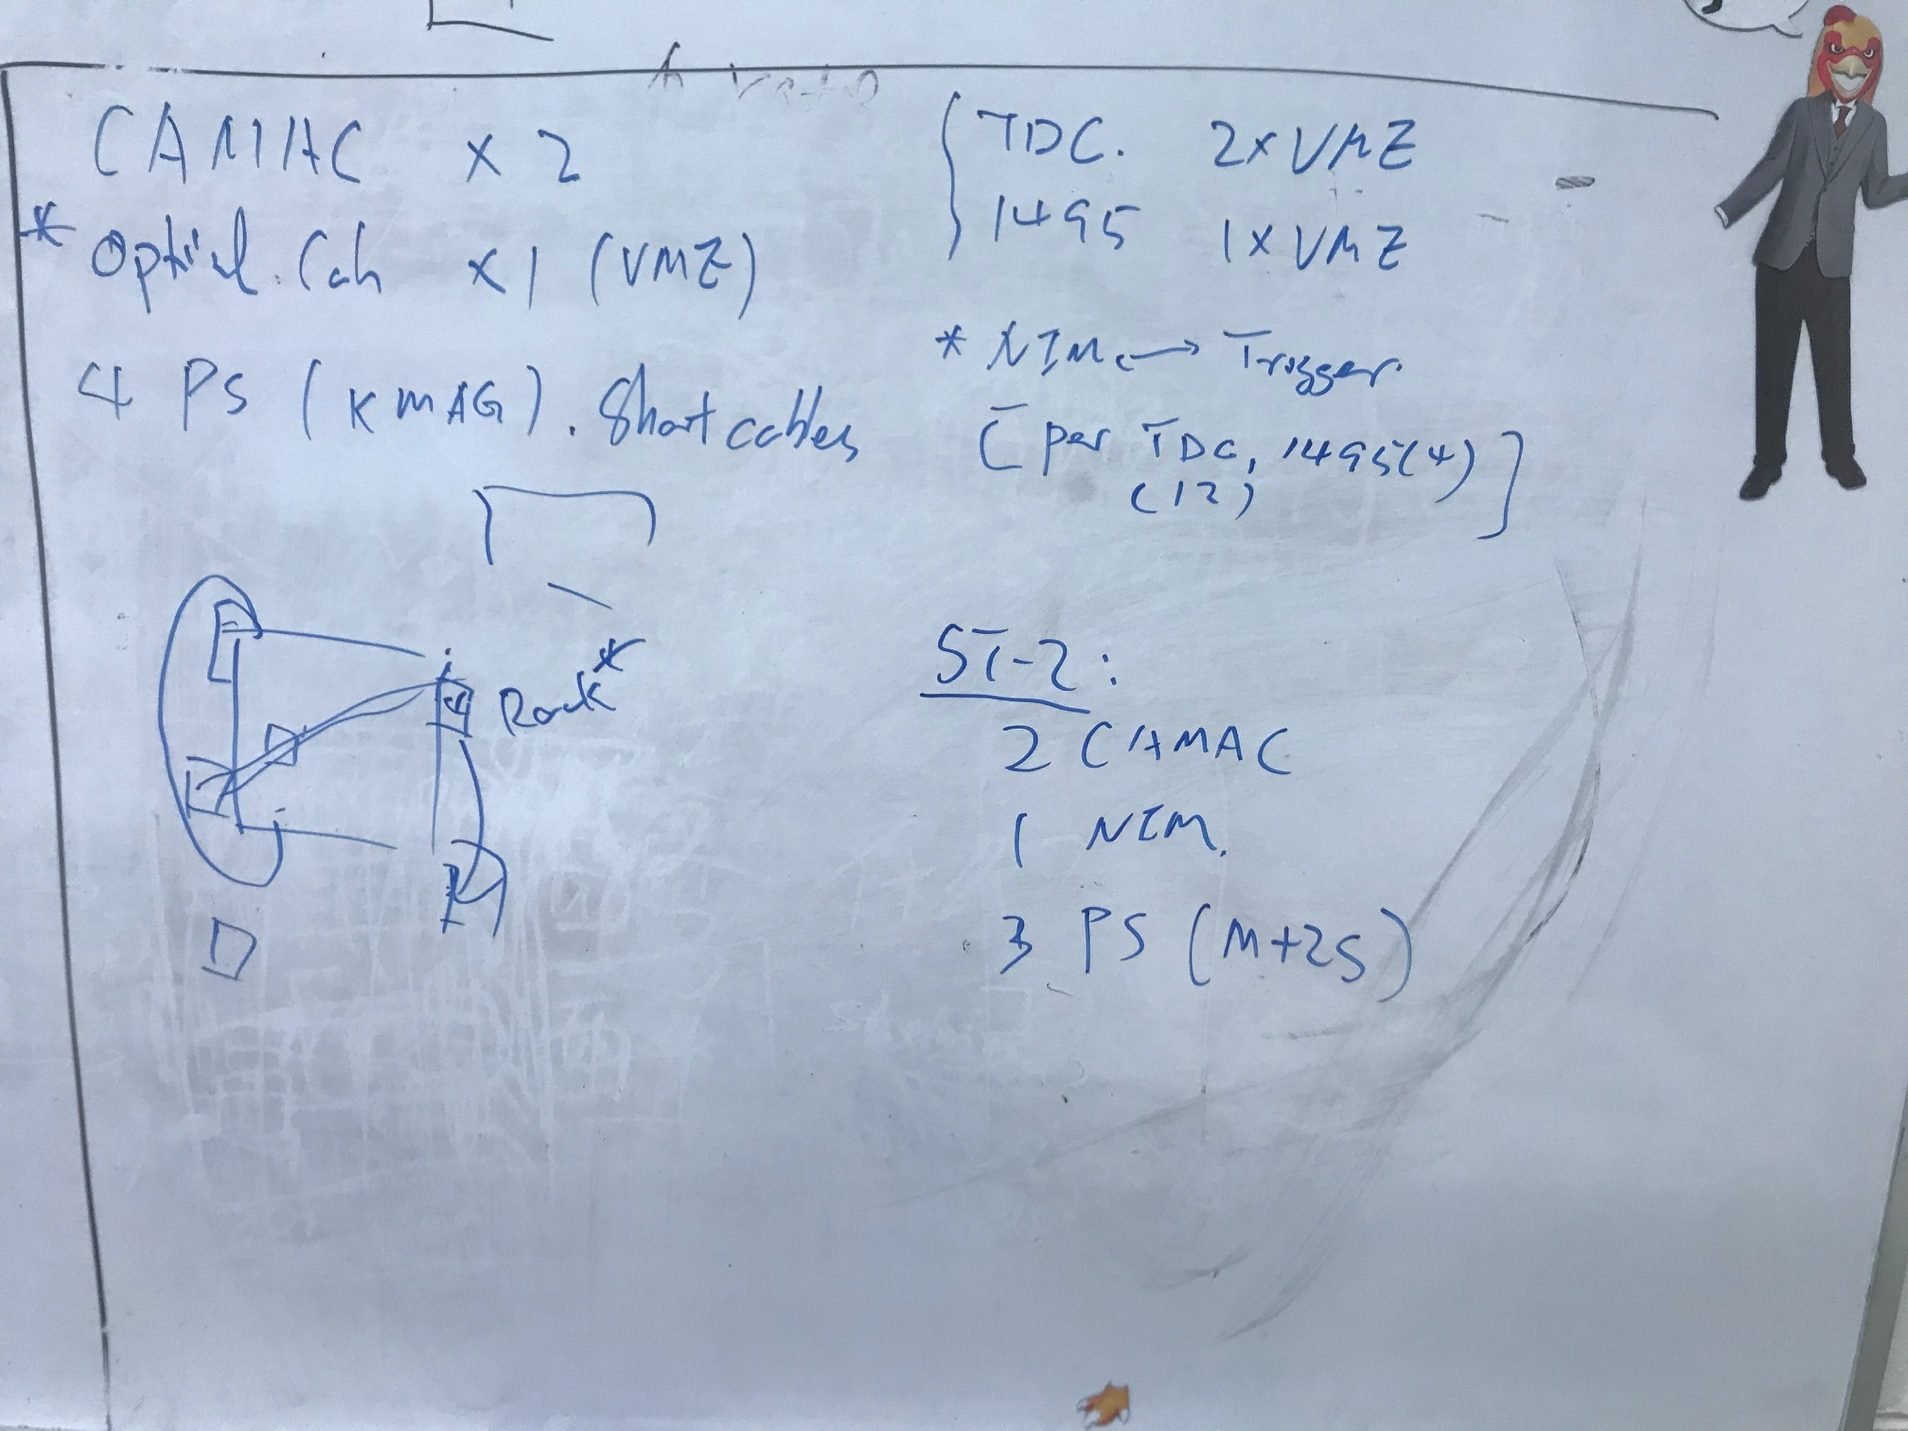 CAMAC x 2
* Optical. Cah x 1 (VME)
4 PS (KMAG). Short cables
Rack*
{ TDC. 2x VME
1495 1x VME
* NIM ↔ Trigger
[ per TDC, 1495(4) ]
(12)
ST-2:
2 CAMAC
1 NIM.
3 PS (M+2S)